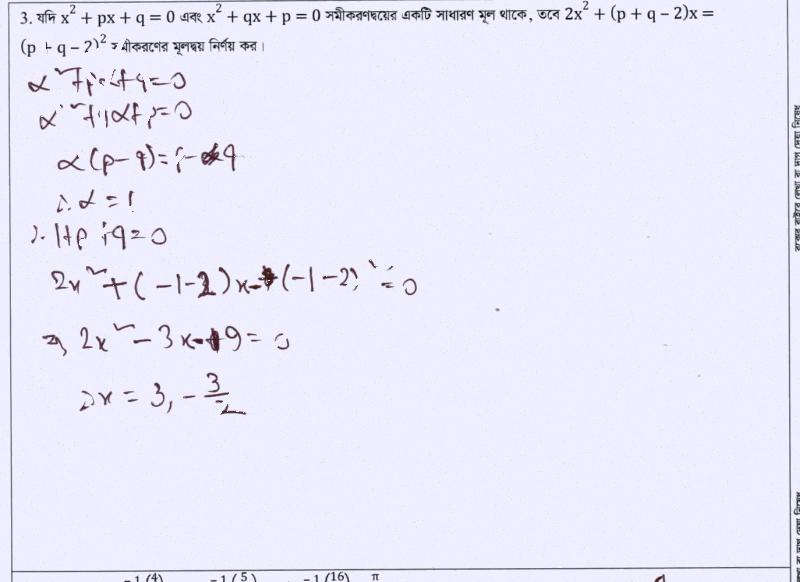 3. যদি x² + px + q = 0 এবং x² + qx + p = 0 সমীকরণদ্বয়ের একটি সাধারণ মূল থাকে, তবে 2x² + (p + q − 2)x =
(p + q − 2)² সমীকরণের মূলদ্বয় নির্ণয় কর।
α² + pα + q = 0
α² + qα + p = 0
α(p − q) = p − q
∴ α = 1
∴ 1 + p + q = 0
2x² + (−1−2)x − (−1−2)² = 0
⇒ 2x² − 3x − 9 = 0
∴ x = 3, −3/2